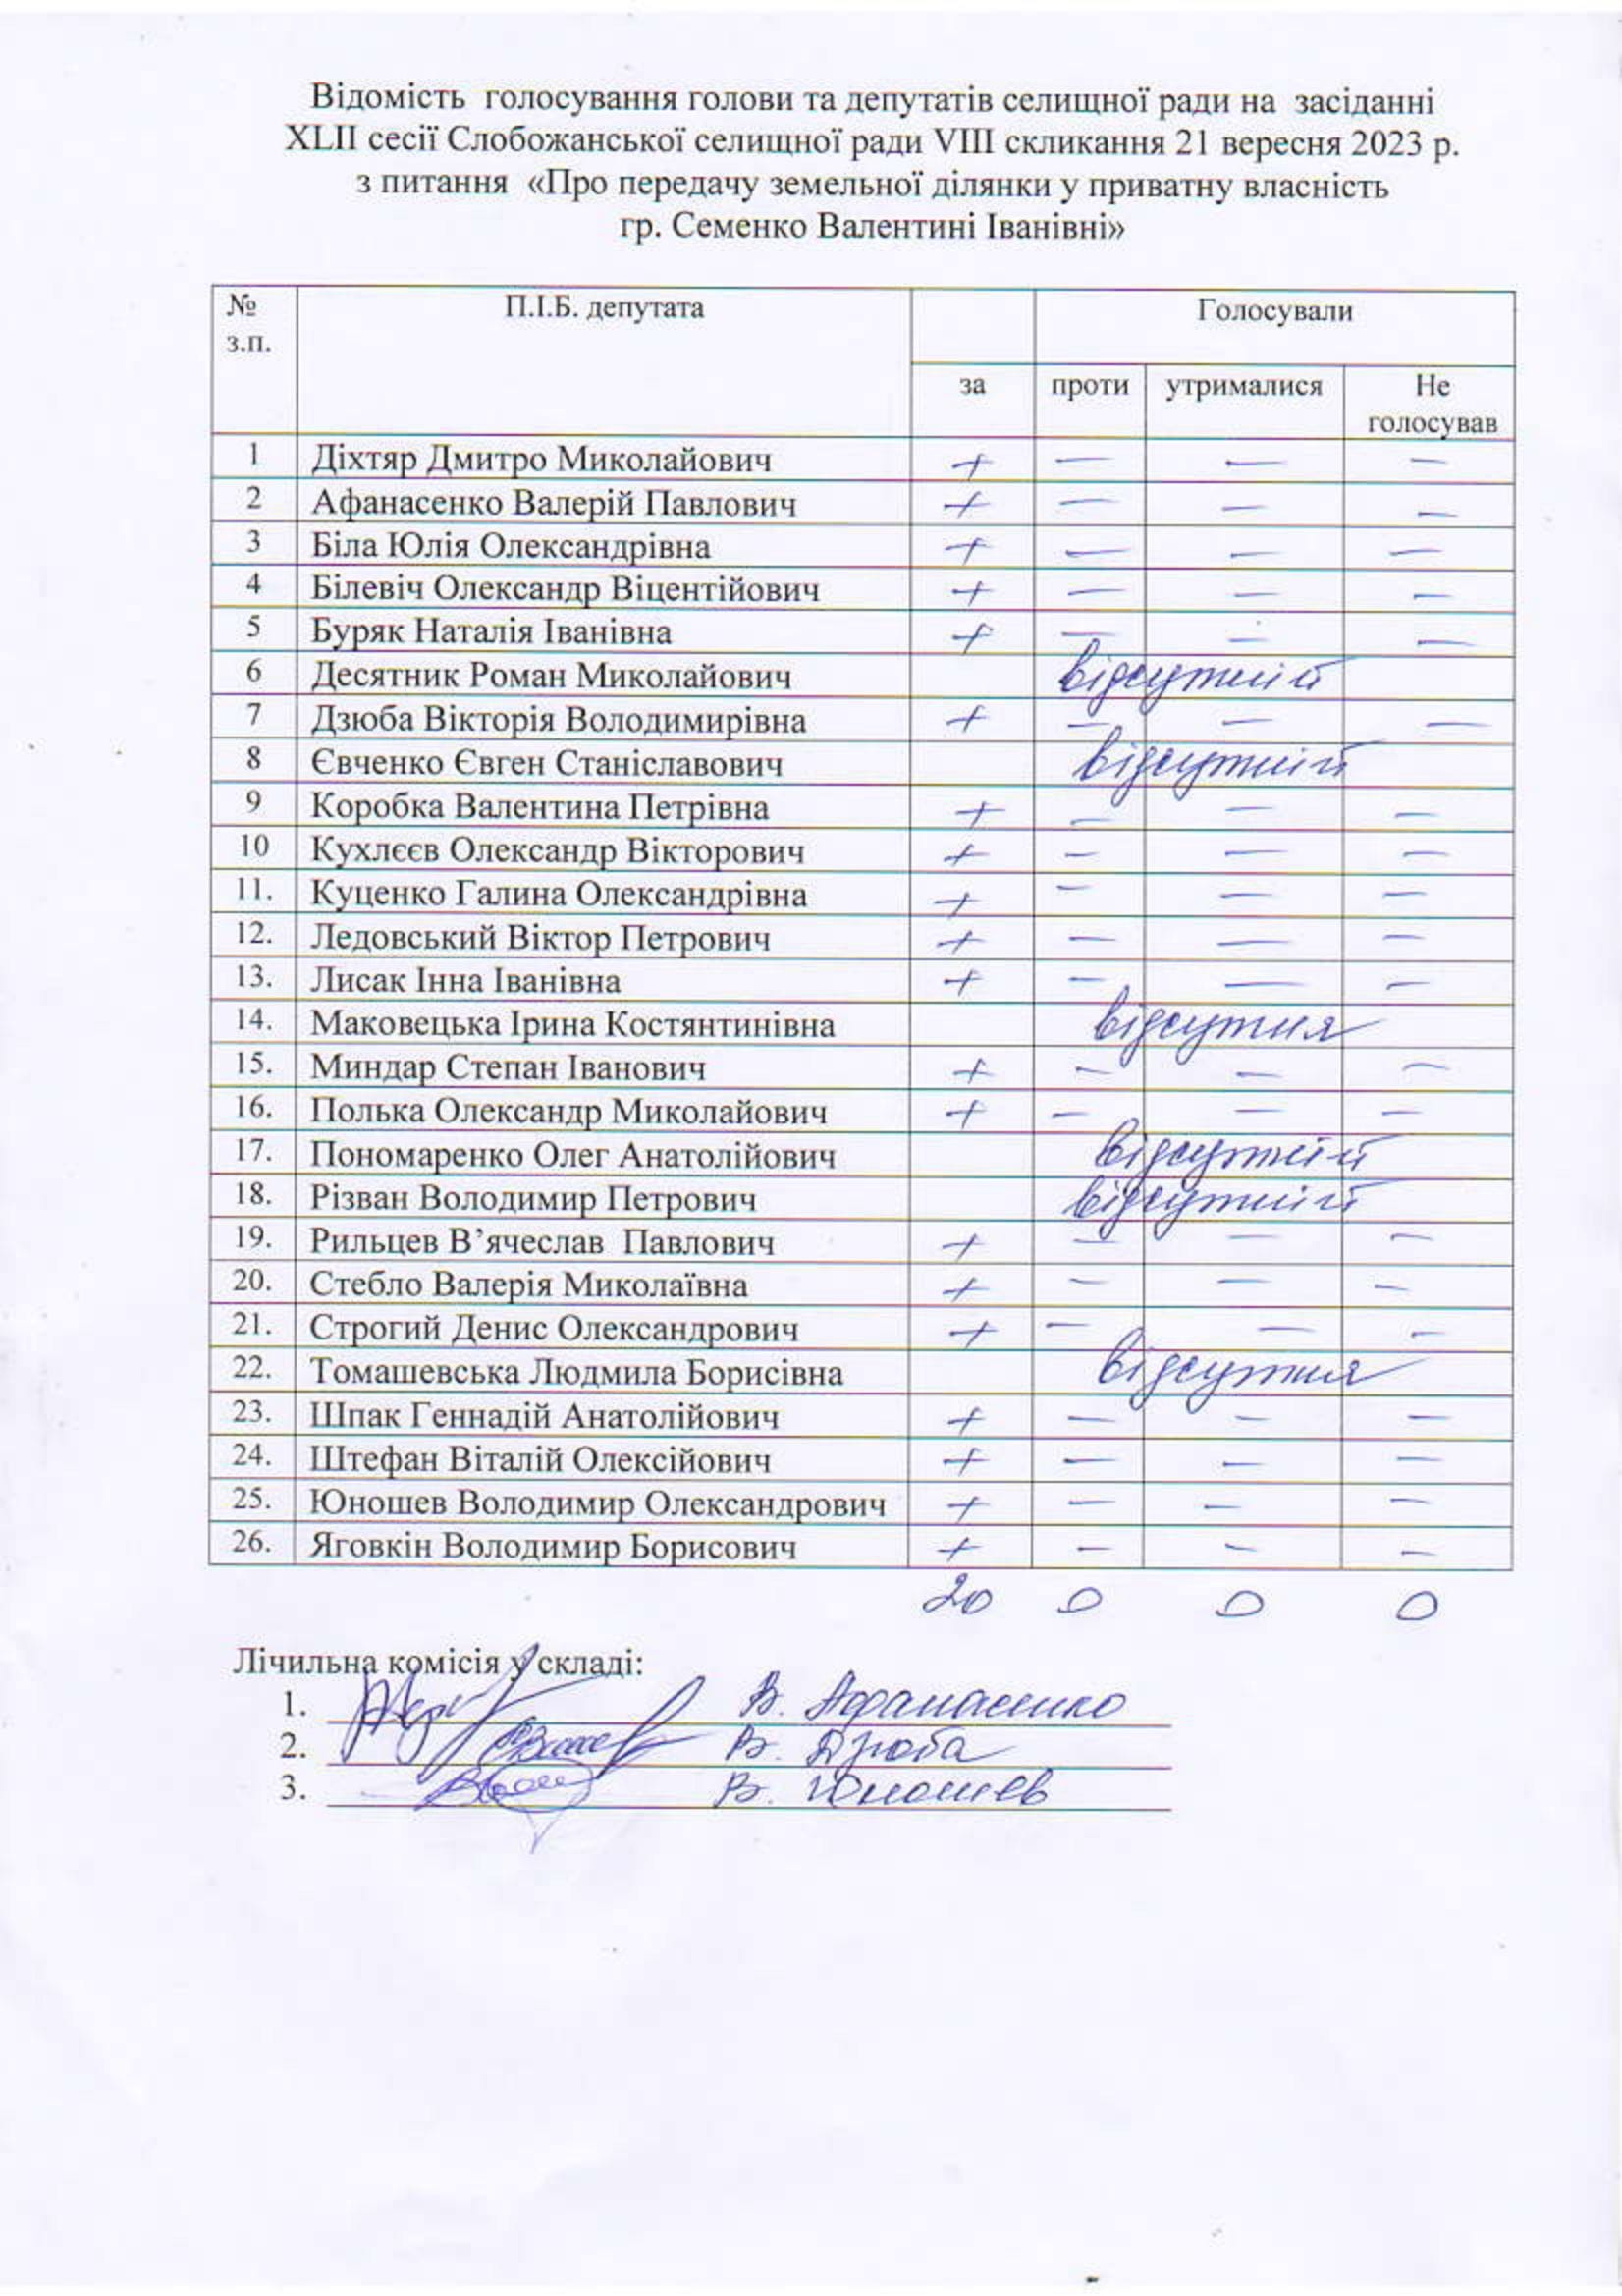 Відомість голосування голови та депутатів селищної ради на засіданні
XLII сесії Слобожанської селищної ради VIII скликання 21 вересня 2023 р.
з питання «Про передачу земельної ділянки у приватну власність
гр. Семенко Валентині Іванівні»
№ з.п. П.І.Б. депутата Голосували
за проти утрималися Не голосував
1 Діхтяр Дмитро Миколайович + — — —
2 Афанасенко Валерій Павлович + — — —
3 Біла Юлія Олександрівна + — — —
4 Білевіч Олександр Віцентійович + — — —
5 Буряк Наталія Іванівна + — — —
6 Десятник Роман Миколайович відсутній
7 Дзюба Вікторія Володимирівна + — — —
8 Євченко Євген Станіславович відсутній
9 Коробка Валентина Петрівна + — — —
10 Кухлєєв Олександр Вікторович + — — —
11. Куценко Галина Олександрівна + — — —
12. Ледовський Віктор Петрович + — — —
13. Лисак Інна Іванівна + — — —
14. Маковецька Ірина Костянтинівна відсутня
15. Миндар Степан Іванович + — — —
16. Полька Олександр Миколайович + — — —
17. Пономаренко Олег Анатолійович відсутній
18. Різван Володимир Петрович відсутній
19. Рильцев В’ячеслав Павлович + — — —
20. Стебло Валерія Миколаївна + — — —
21. Строгий Денис Олександрович + — — —
22. Томашевська Людмила Борисівна відсутня
23. Шпак Геннадій Анатолійович + — — —
24. Штефан Віталій Олексійович + — — —
25. Юношев Володимир Олександрович + — — —
26. Яговкін Володимир Борисович + — — —
20 0 0 0
Лічильна комісія у складі:
1. В. Афанасенко
2. В. Дзюба
3. В. Юношев